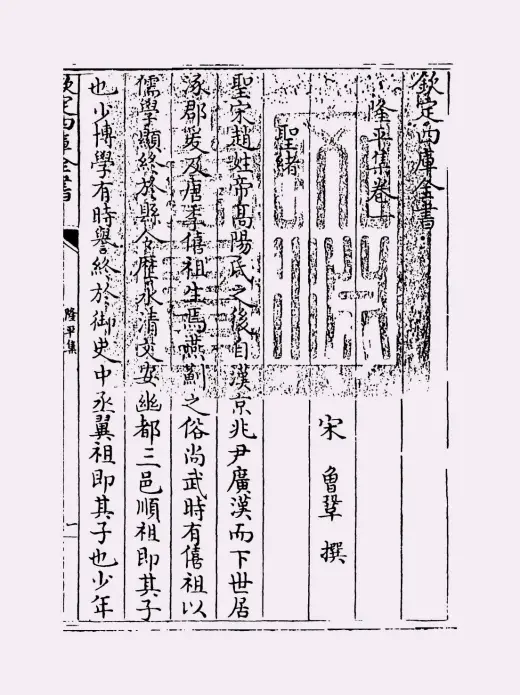 欽定四庫全書
隆平集卷一
宋 曾鞏 撰
聖緒
聖宋趙姓帝高陽氏之後自漢京兆尹廣漢而下世居
涿郡爰及唐季僖祖生焉燕薊之俗尚武時有僖祖以
儒學顯終於縣令歷永清文安幽都三邑順祖即其子
也少博學有時譽終於御史中丞翼祖即其子也少年
欽定四庫全書
隆平集
一